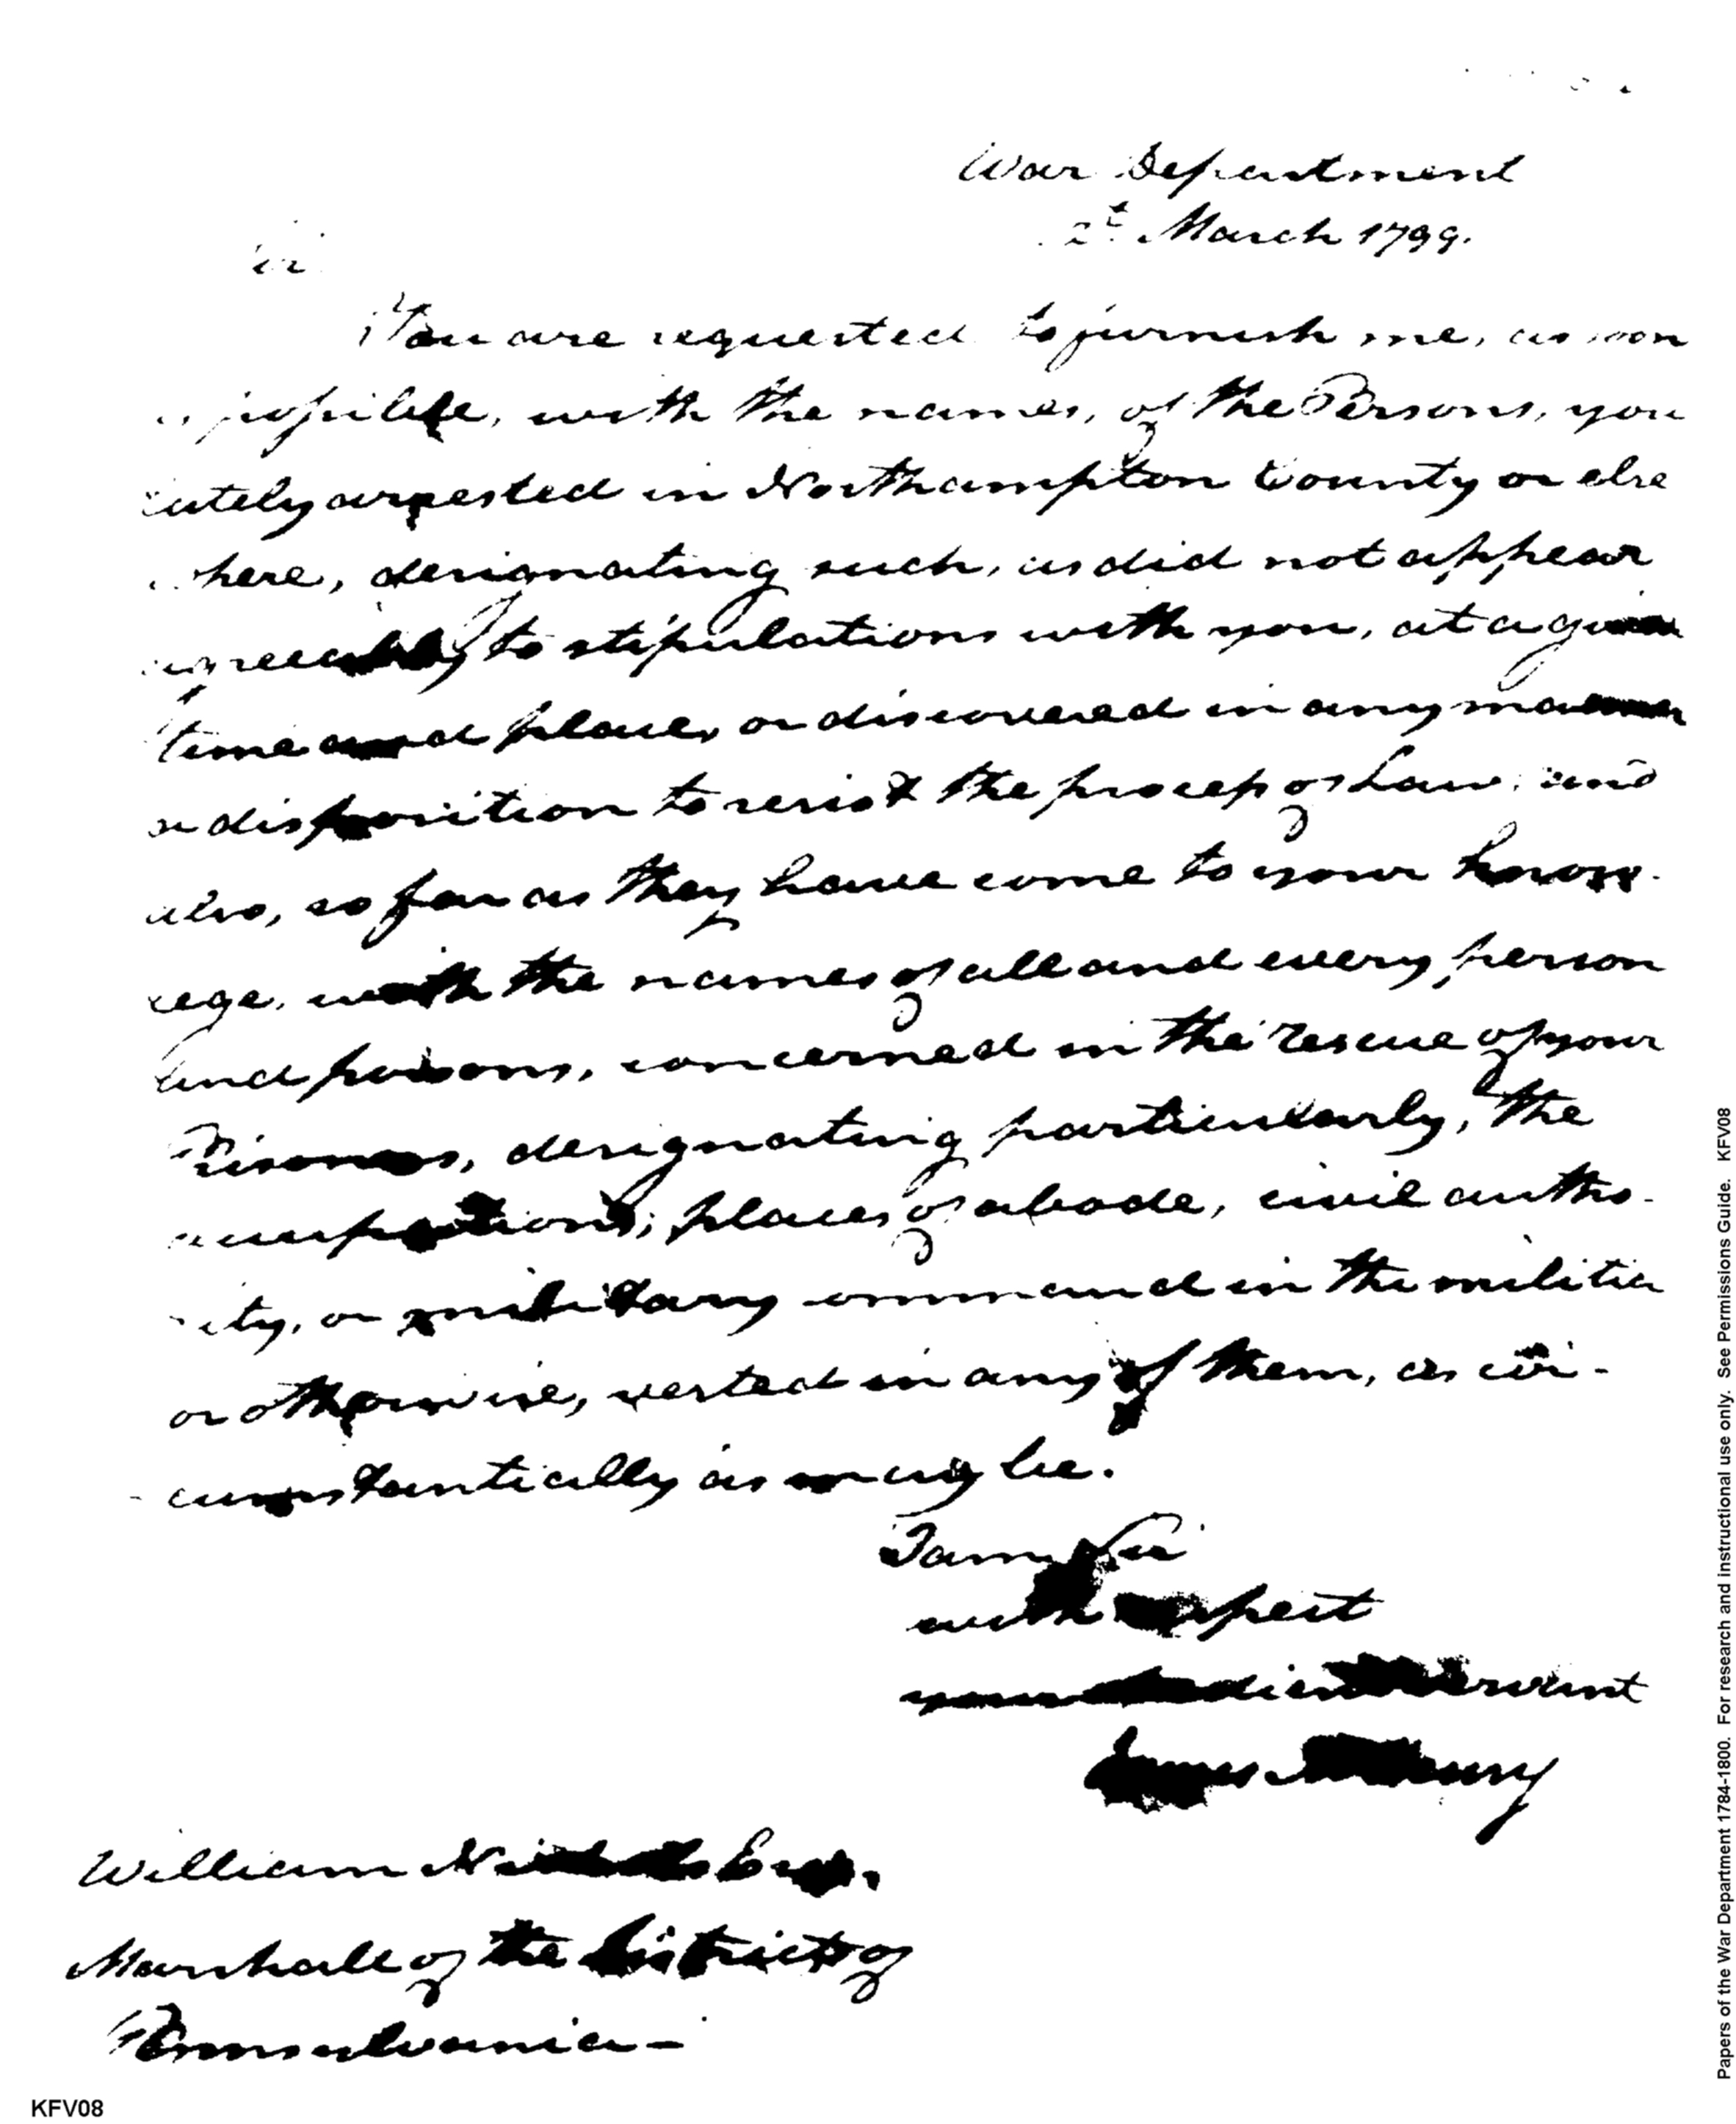 War Department
March 1799.
You are requested to furnish me, as soon
possible, with the names, of the Persons, you
lately arrested in Northampton County or else
here, designating such, as did not appear
to stipulations with you, at a given
time and place, or discovered in any manner
disposition to resist the process of Law; and
also, so far as they have come to your know-
lege, with the names of all and every person
and persons, concerned in the rescue of your
Prisoners, designating particularly, the
occupations; places of abode, civil autho-
rity, or military command in the militia
or otherwise, vested in any of them, as cir-
cumstantically as may be.
I am Sir
with respect
your obedient servant
James McHenry
William Nichols Esqr.
Marshall of the District of
Pennsylvania —
KFV08
Papers of the War Department 1784-1800. For research and instructional use only. See Permissions Guide. KFV08